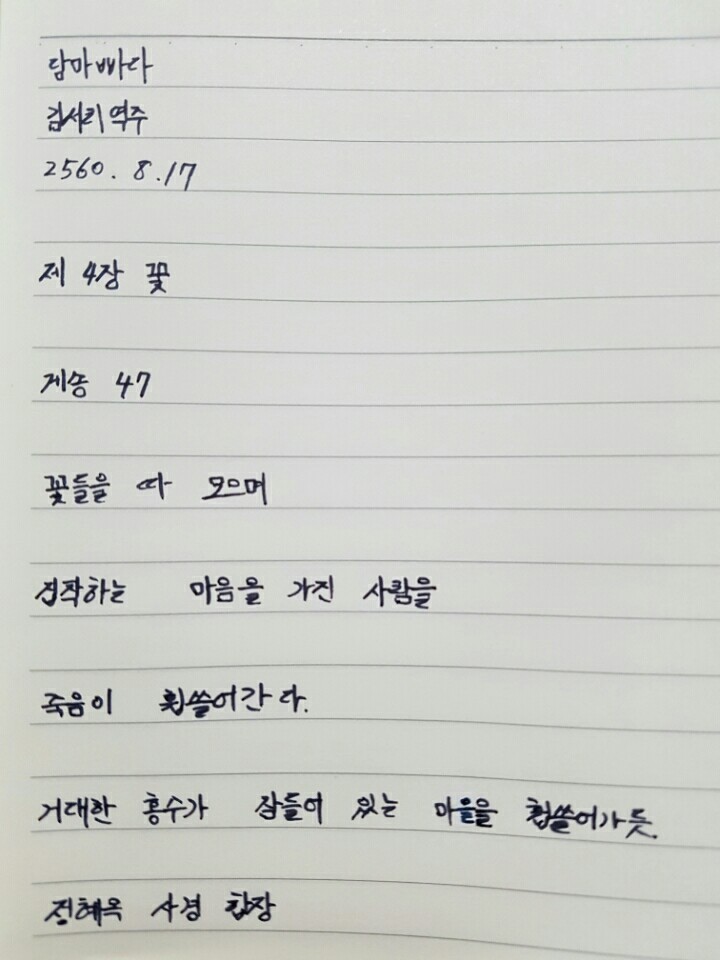 담마빠다
김서리 역주
2560. 8.17
제 4장 꽃
게송 47
꽃들을 따 모으며
집착하는 마음을 가진 사람을
죽음이 휩쓸어간다.
거대한 홍수가 잠들어 있는 마을을 휩쓸어가듯.
정혜옥 사경 합장